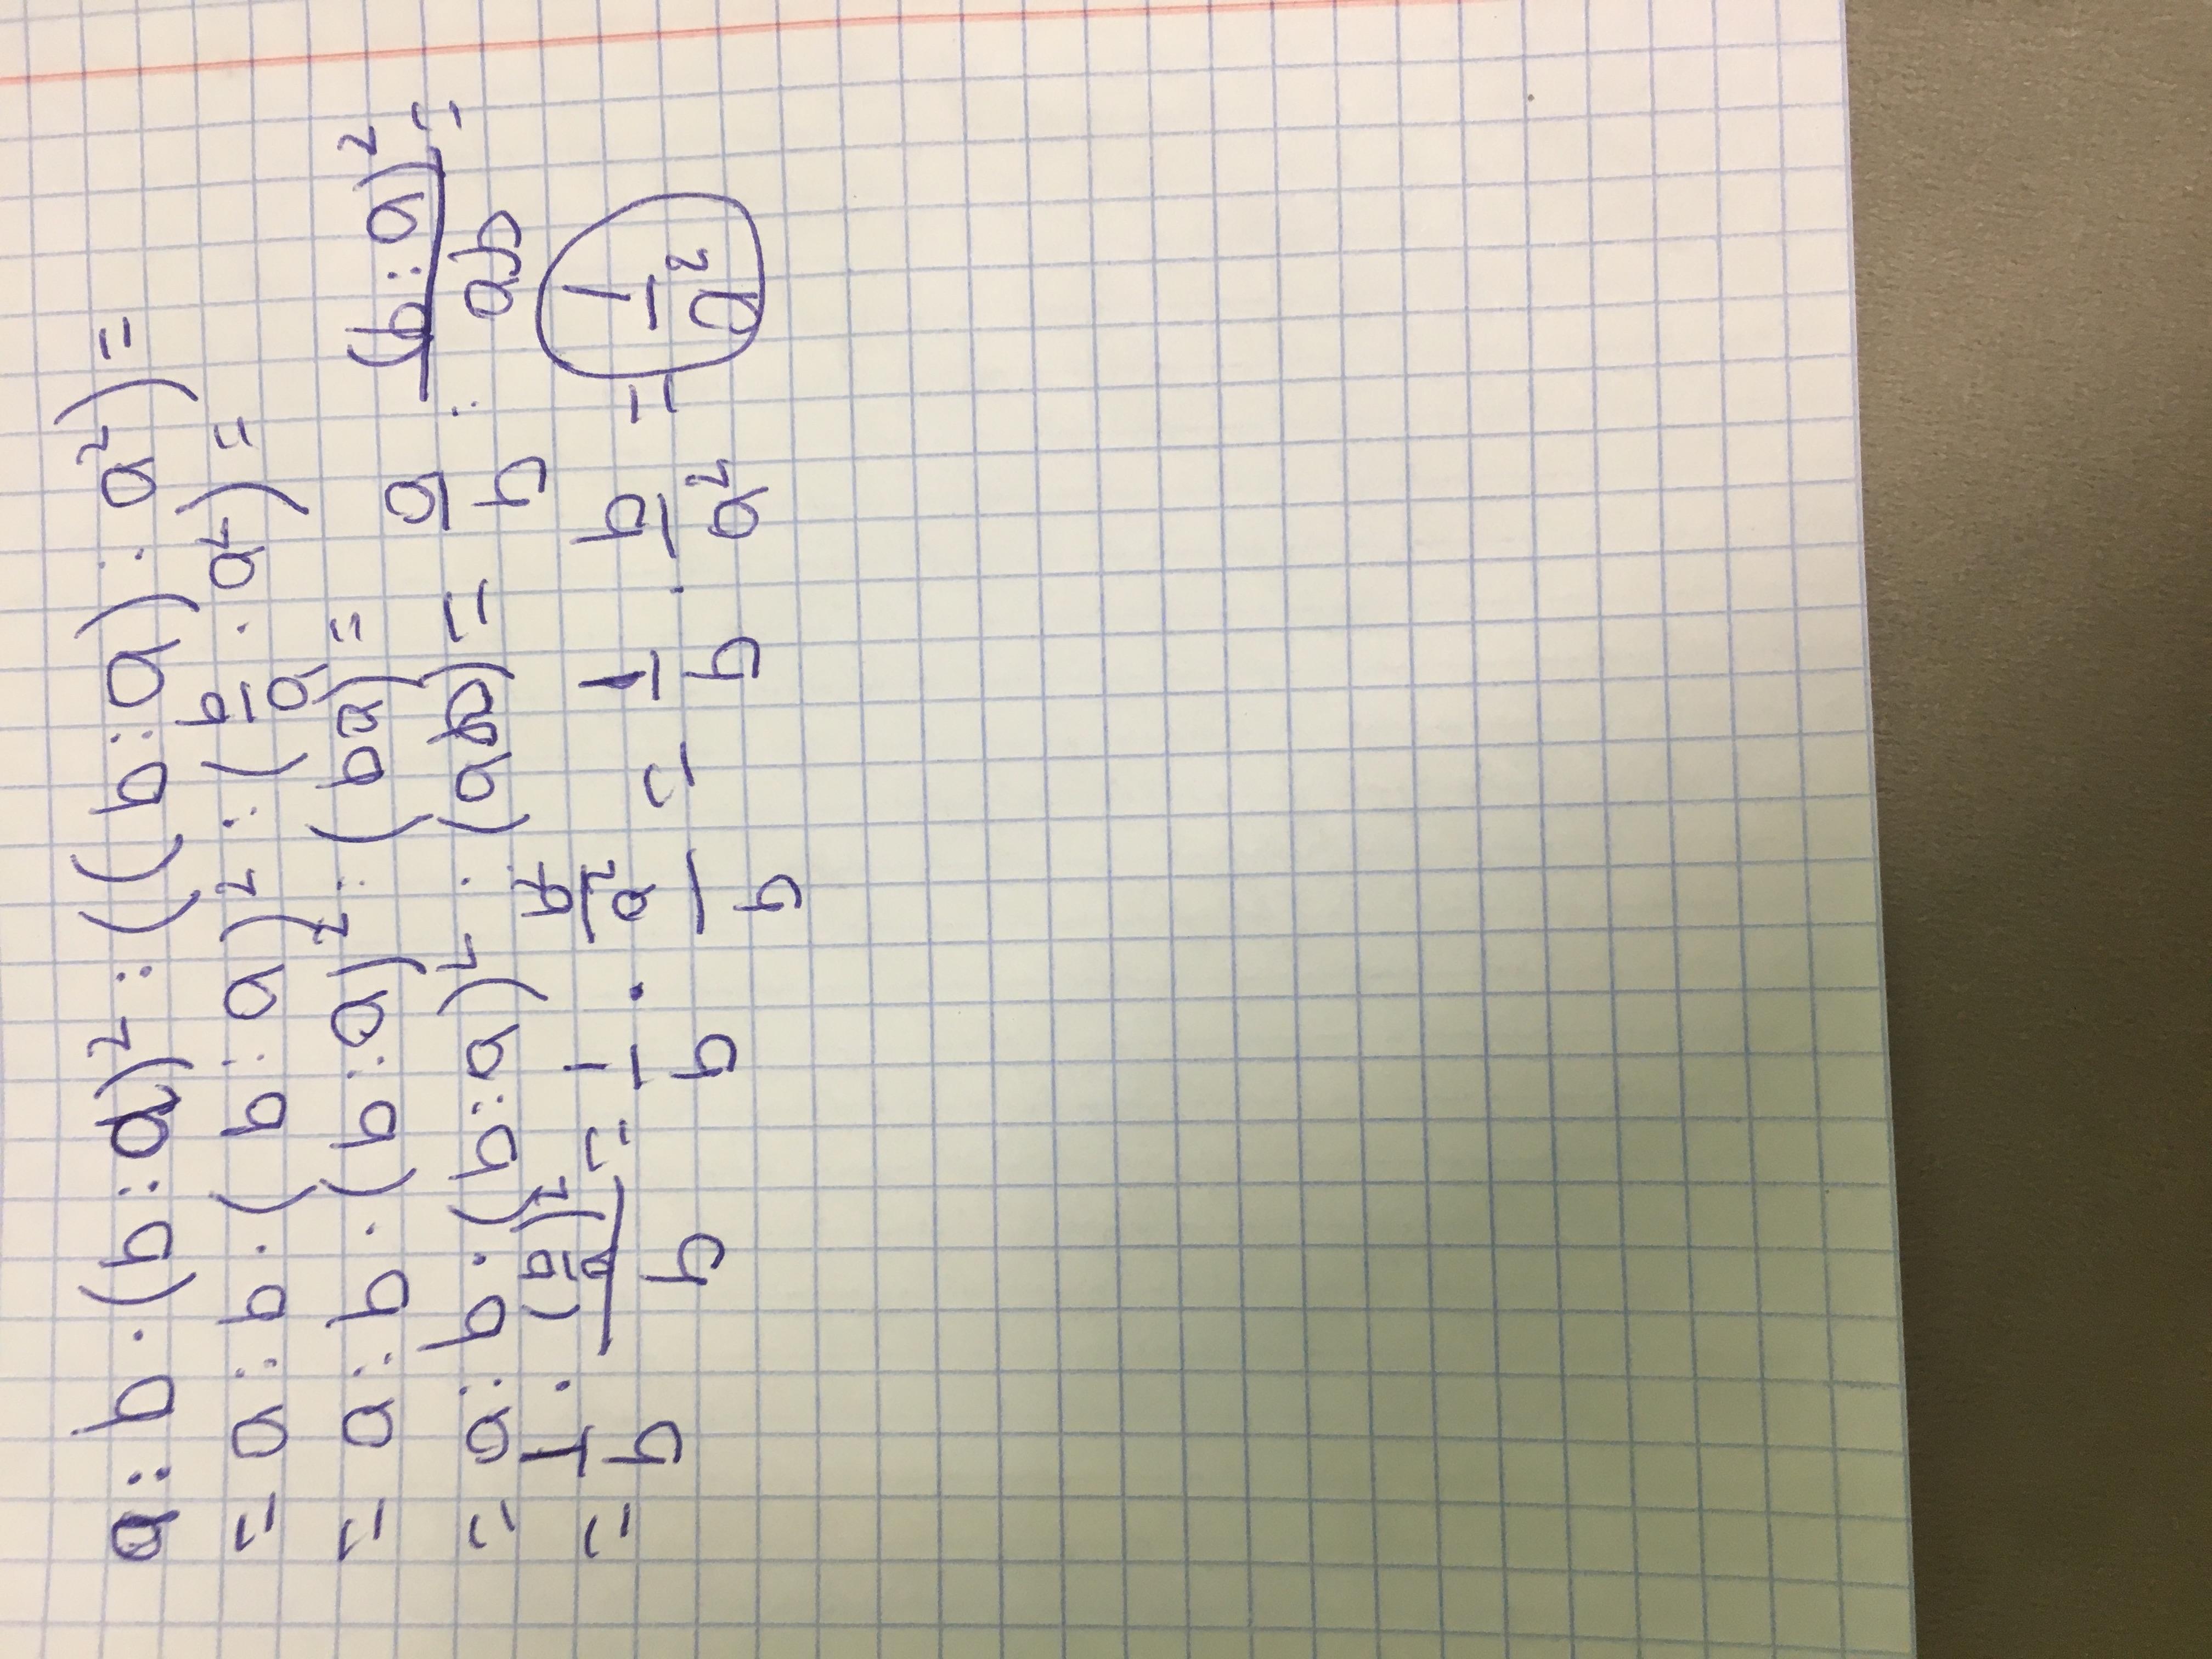 a : b · (b : a)² : ((b : a) · a²) =
= a : b · (b : a)² : (b/a · a²) =
= a : b · (b : a)² : (ba) =
= a : b · (b : a)² : (ab) = a/b · (b : a)²/ab =
= 1/b · (b/a)²/b = 1/b · b²/a²/b = 1/b · b/a² = 1/a²